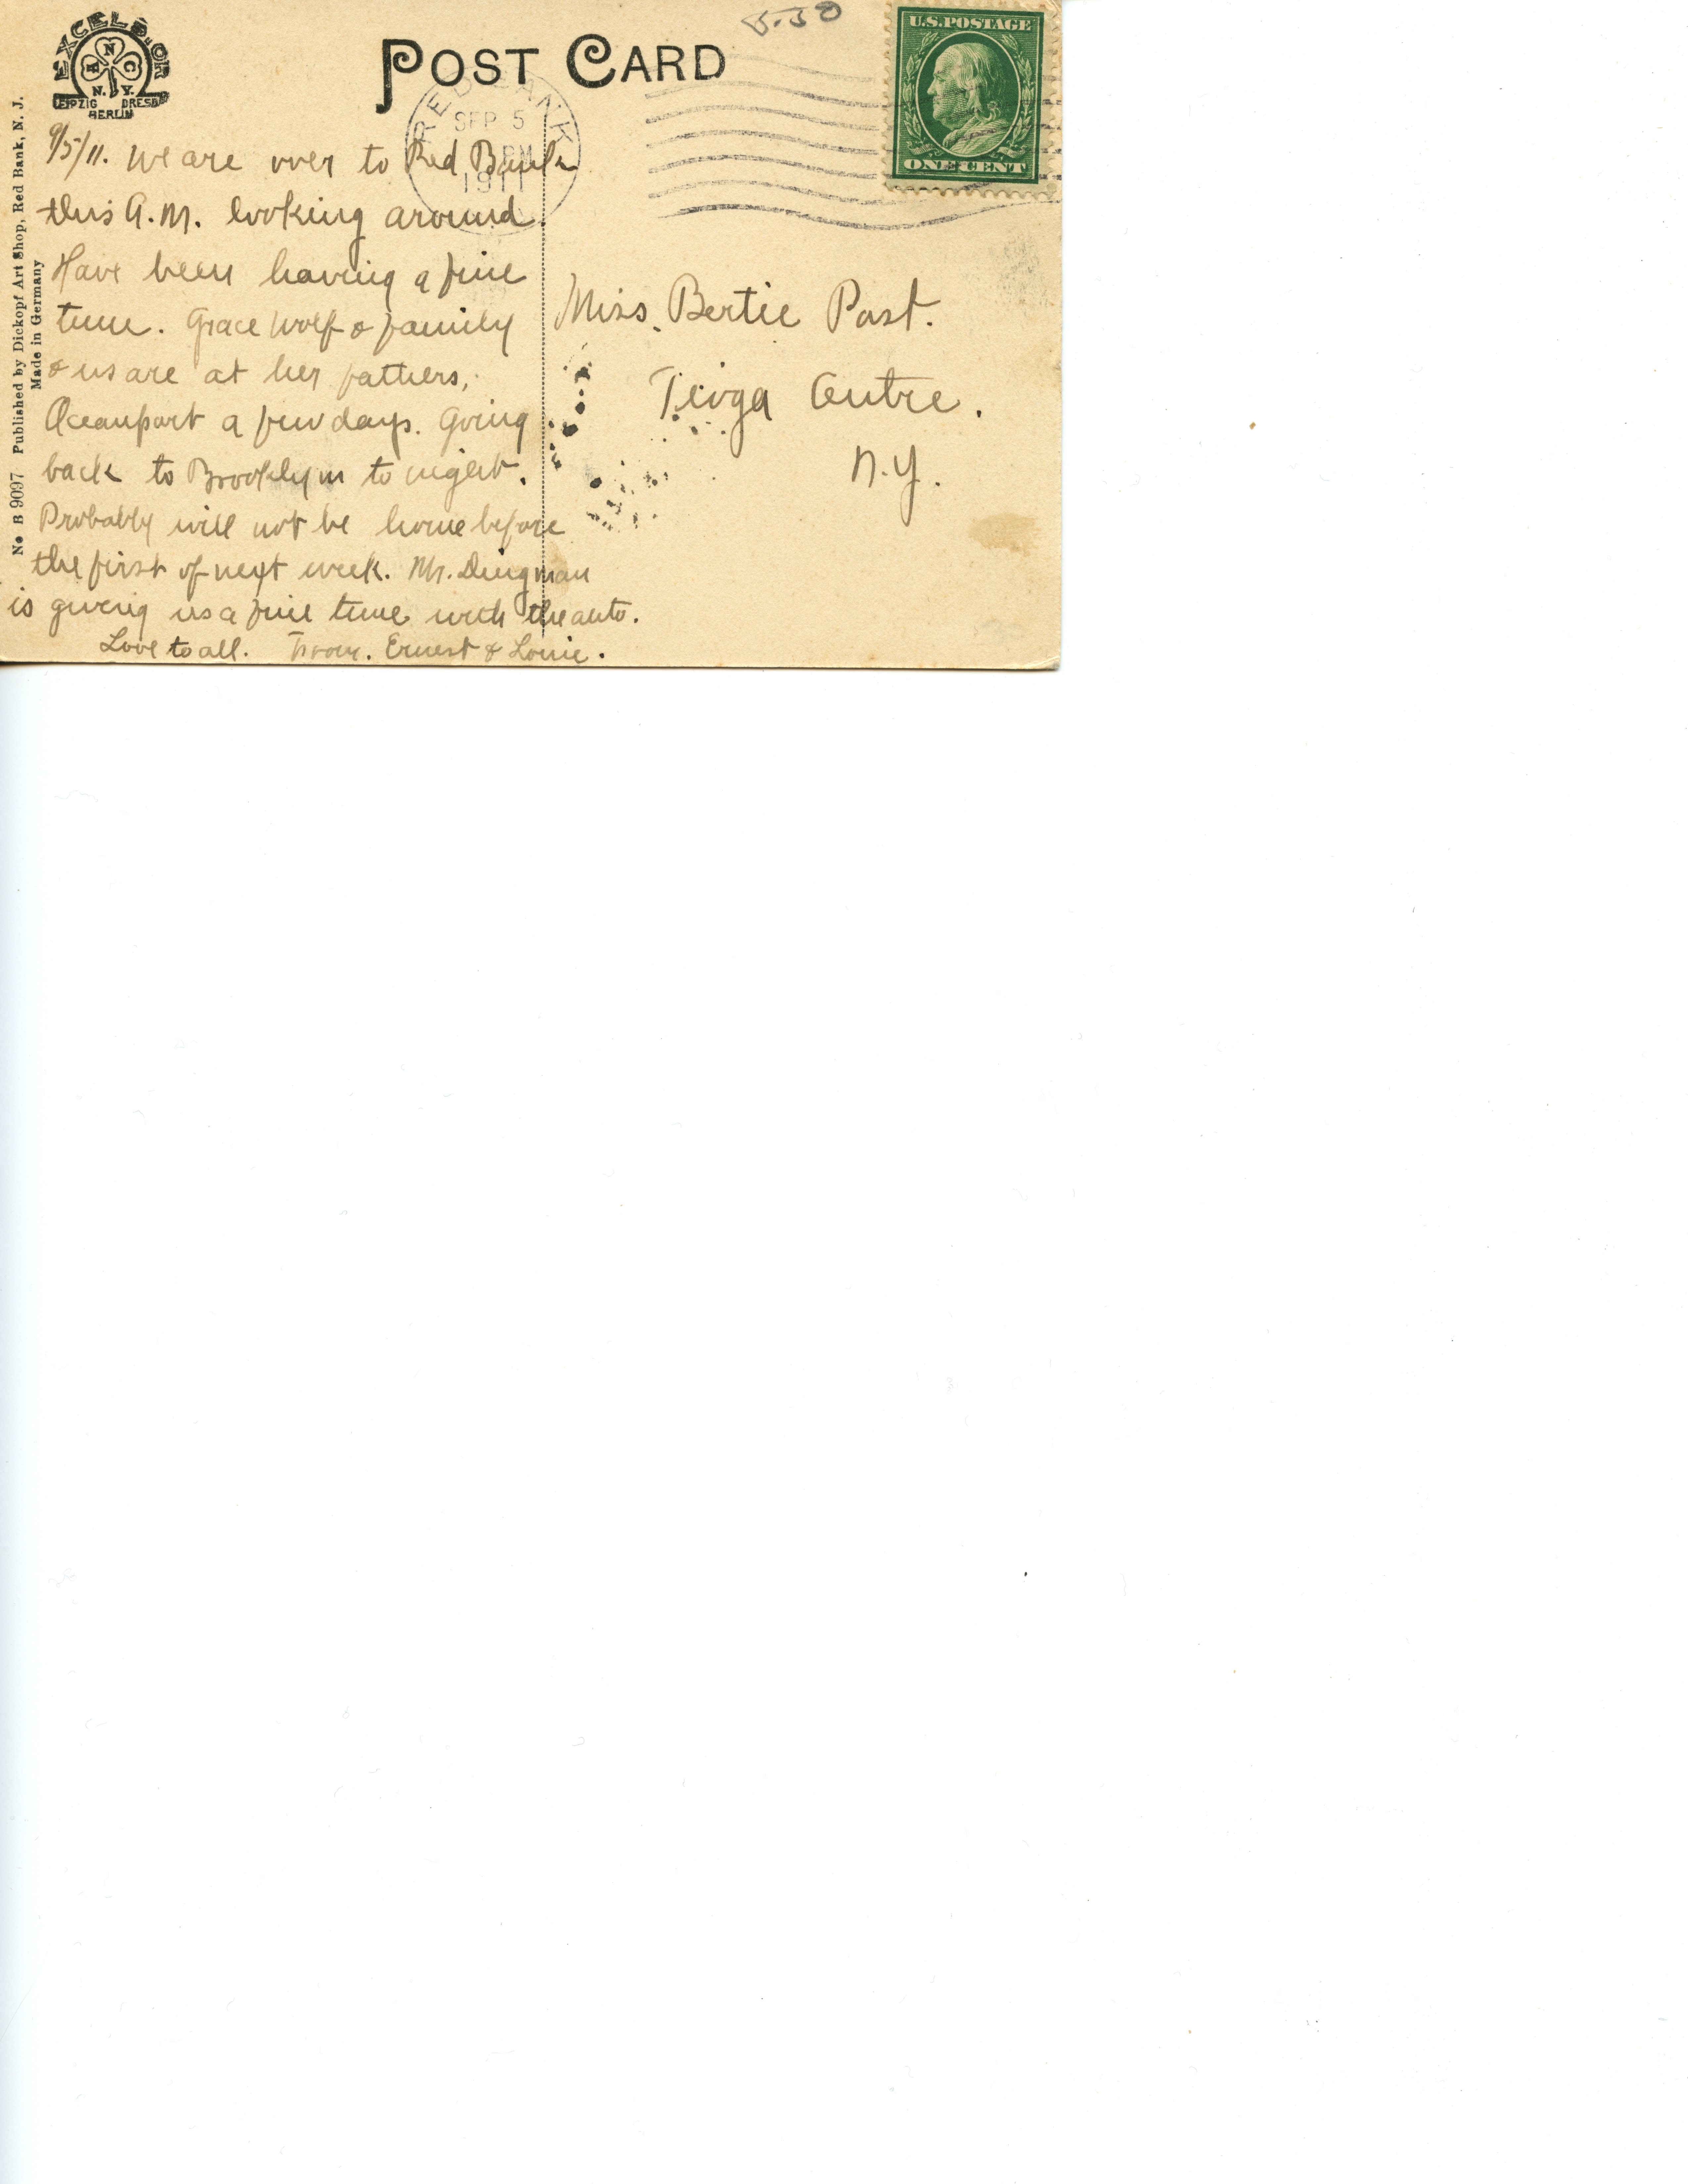 5.50
EXCELSIOR
A N C
N. Y.
LEIPZIG DRESD
BERLIN
POST CARD
U.S.POSTAGE
ONE CENT
RED BANK
SEP 5
PM
1911
No B 9097 Published by Dickopf Art Shop, Red Bank, N. J.
Made in Germany
9/5/11. We are over to Red Bank
this A.M. looking around.
Have been having a fine
time. Grace Wolf & family
& us are at her fathers,
Oceanport a few days. Going
back to Brooklyn to night.
Probably will not be home before
the first of next week. Mr. Dingman
is giving us a fine time with the auto.
Love to all. From. Ernest & Lonie.
Miss. Bertie Post.
Tioga Centre.
N.Y.